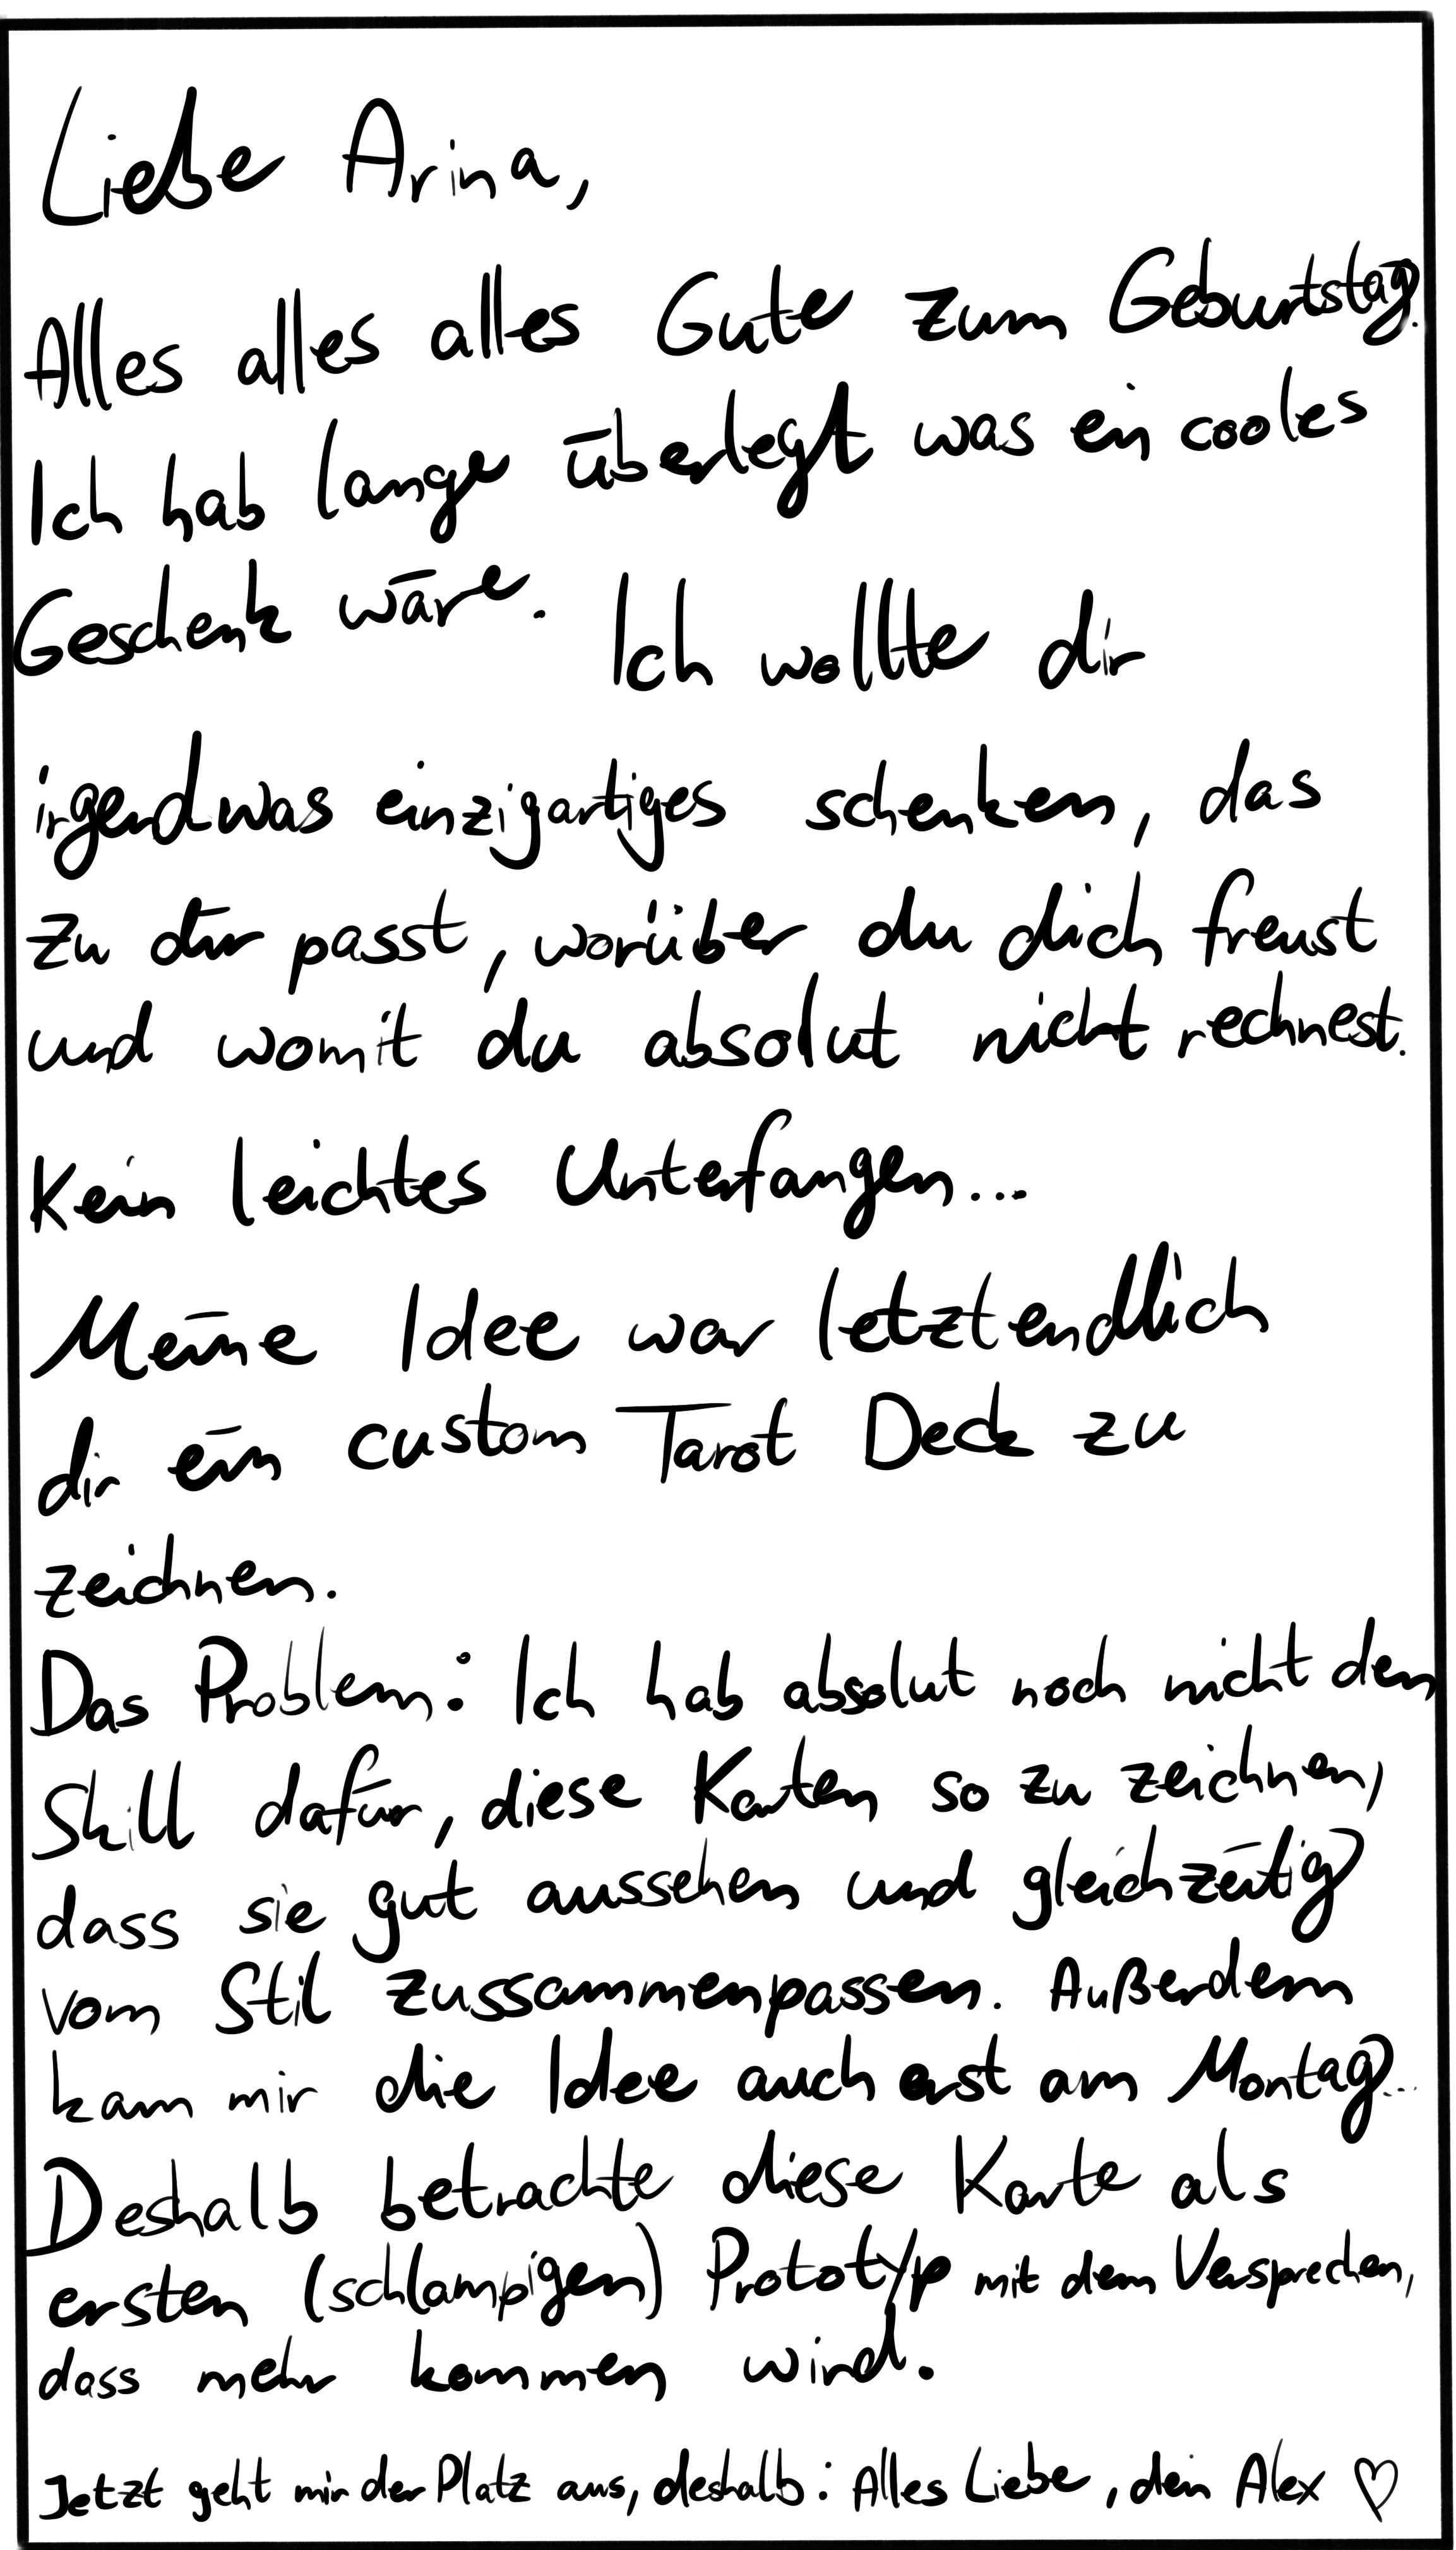 Liebe Arina,
Alles alles alles Gute zum Geburtstag.
Ich hab lange überlegt was ein cooles
Geschenk wäre. Ich wollte dir
irgendwas einzigartiges schenken, das
zu dir passt, worüber du dich freust
und womit du absolut nicht rechnest.
Kein leichtes Unterfangen...
Meine Idee war letztendlich
dir ein custom Tarot Deck zu
zeichnen.
Das Problem: Ich hab absolut noch nicht den
Skill dafür, diese Karten so zu zeichnen,
dass sie gut aussehen und gleichzeitig
vom Stil zussammenpassen. Außerdem
kam mir die Idee auch erst am Montag...
Deshalb betrachte diese Karte als
ersten (schlampigen) Prototyp mit dem Versprechen,
dass mehr kommen wird.
Jetzt geht mir der Platz aus, deshalb: Alles Liebe, dein Alex ♡